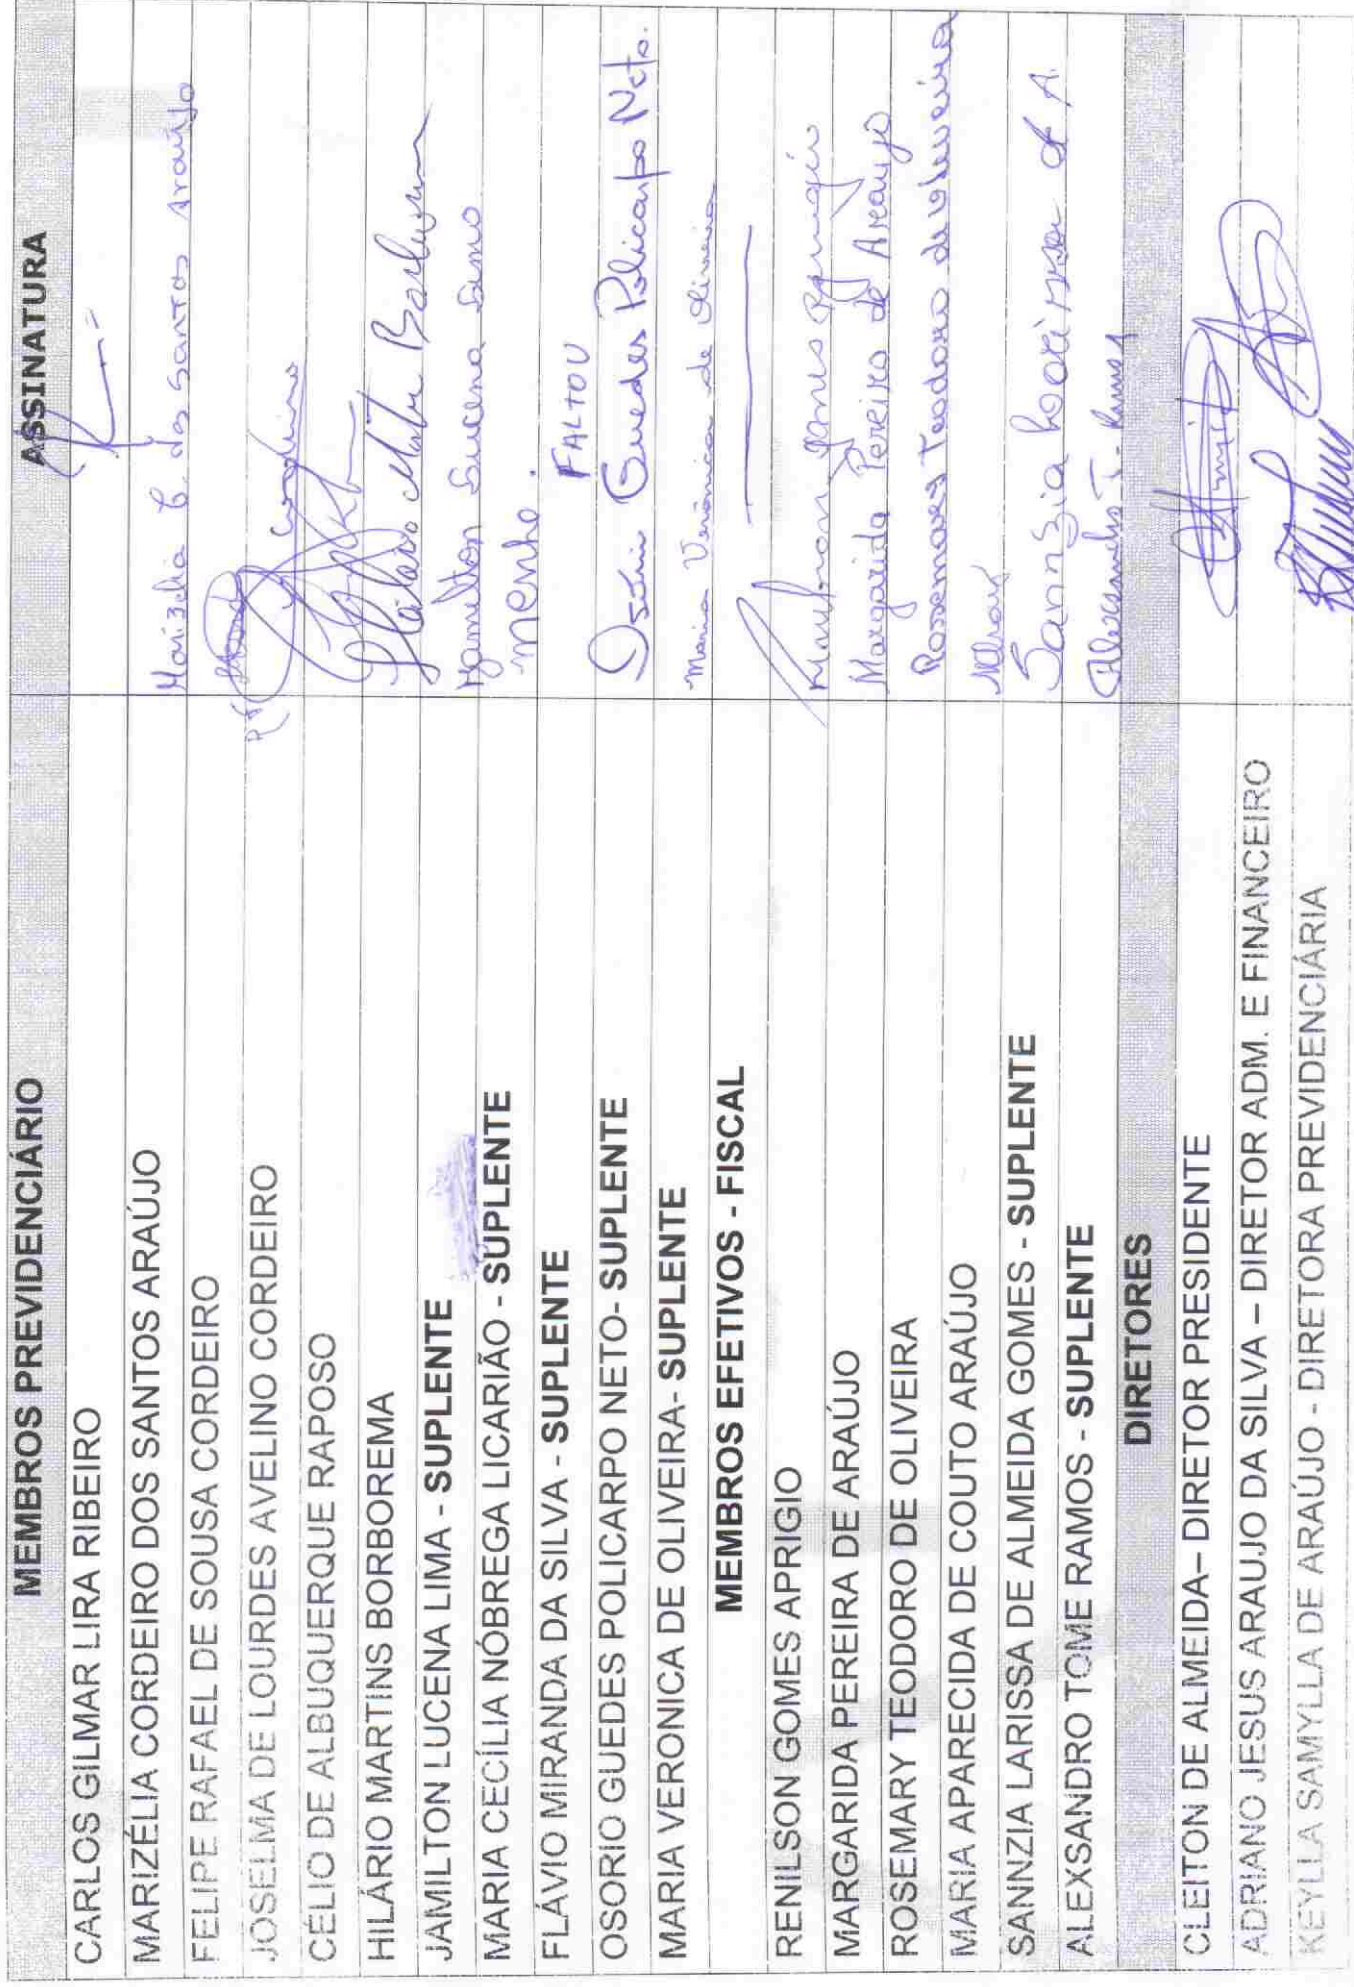 MEMBROS PREVIDENCIÁRIO ASSINATURA
CARLOS GILMAR LIRA RIBEIRO
MARIZÉLIA CORDEIRO DOS SANTOS ARAÚJO Marizelia C. dos Santos Araújo
FELIPE RAFAEL DE SOUSA CORDEIRO
JOSELMA DE LOURDES AVELINO CORDEIRO
CÉLIO DE ALBUQUERQUE RAPOSO
HILÁRIO MARTINS BORBOREMA
JAMILTON LUCENA LIMA - SUPLENTE Jamilton Lucena
MARIA CECÍLIA NÓBREGA LICARIÃO - SUPLENTE
FLÁVIO MIRANDA DA SILVA - SUPLENTE FALTOU
OSORIO GUEDES POLICARPO NETO- SUPLENTE Osório Guedes Policarpo Neto.
MARIA VERONICA DE OLIVEIRA- SUPLENTE Maria Verônica de Oliveira
MEMBROS EFETIVOS - FISCAL
RENILSON GOMES APRIGIO
MARGARIDA PEREIRA DE ARAÚJO Margarida Pereira de Araujo
ROSEMARY TEODORO DE OLIVEIRA Rosemary Teodoro de Oliveira
MARIA APARECIDA DE COUTO ARAÚJO
SANNZIA LARISSA DE ALMEIDA GOMES - SUPLENTE Sannzia Larissa
ALEXSANDRO TOME RAMOS - SUPLENTE Alexsandro T. Ramos
DIRETORES
CLEITON DE ALMEIDA– DIRETOR PRESIDENTE
ADRIANO JESUS ARAUJO DA SILVA – DIRETOR ADM. E FINANCEIRO
KEYLLA SAMYLLA DE ARAÚJO - DIRETORA PREVIDENCIÁRIA